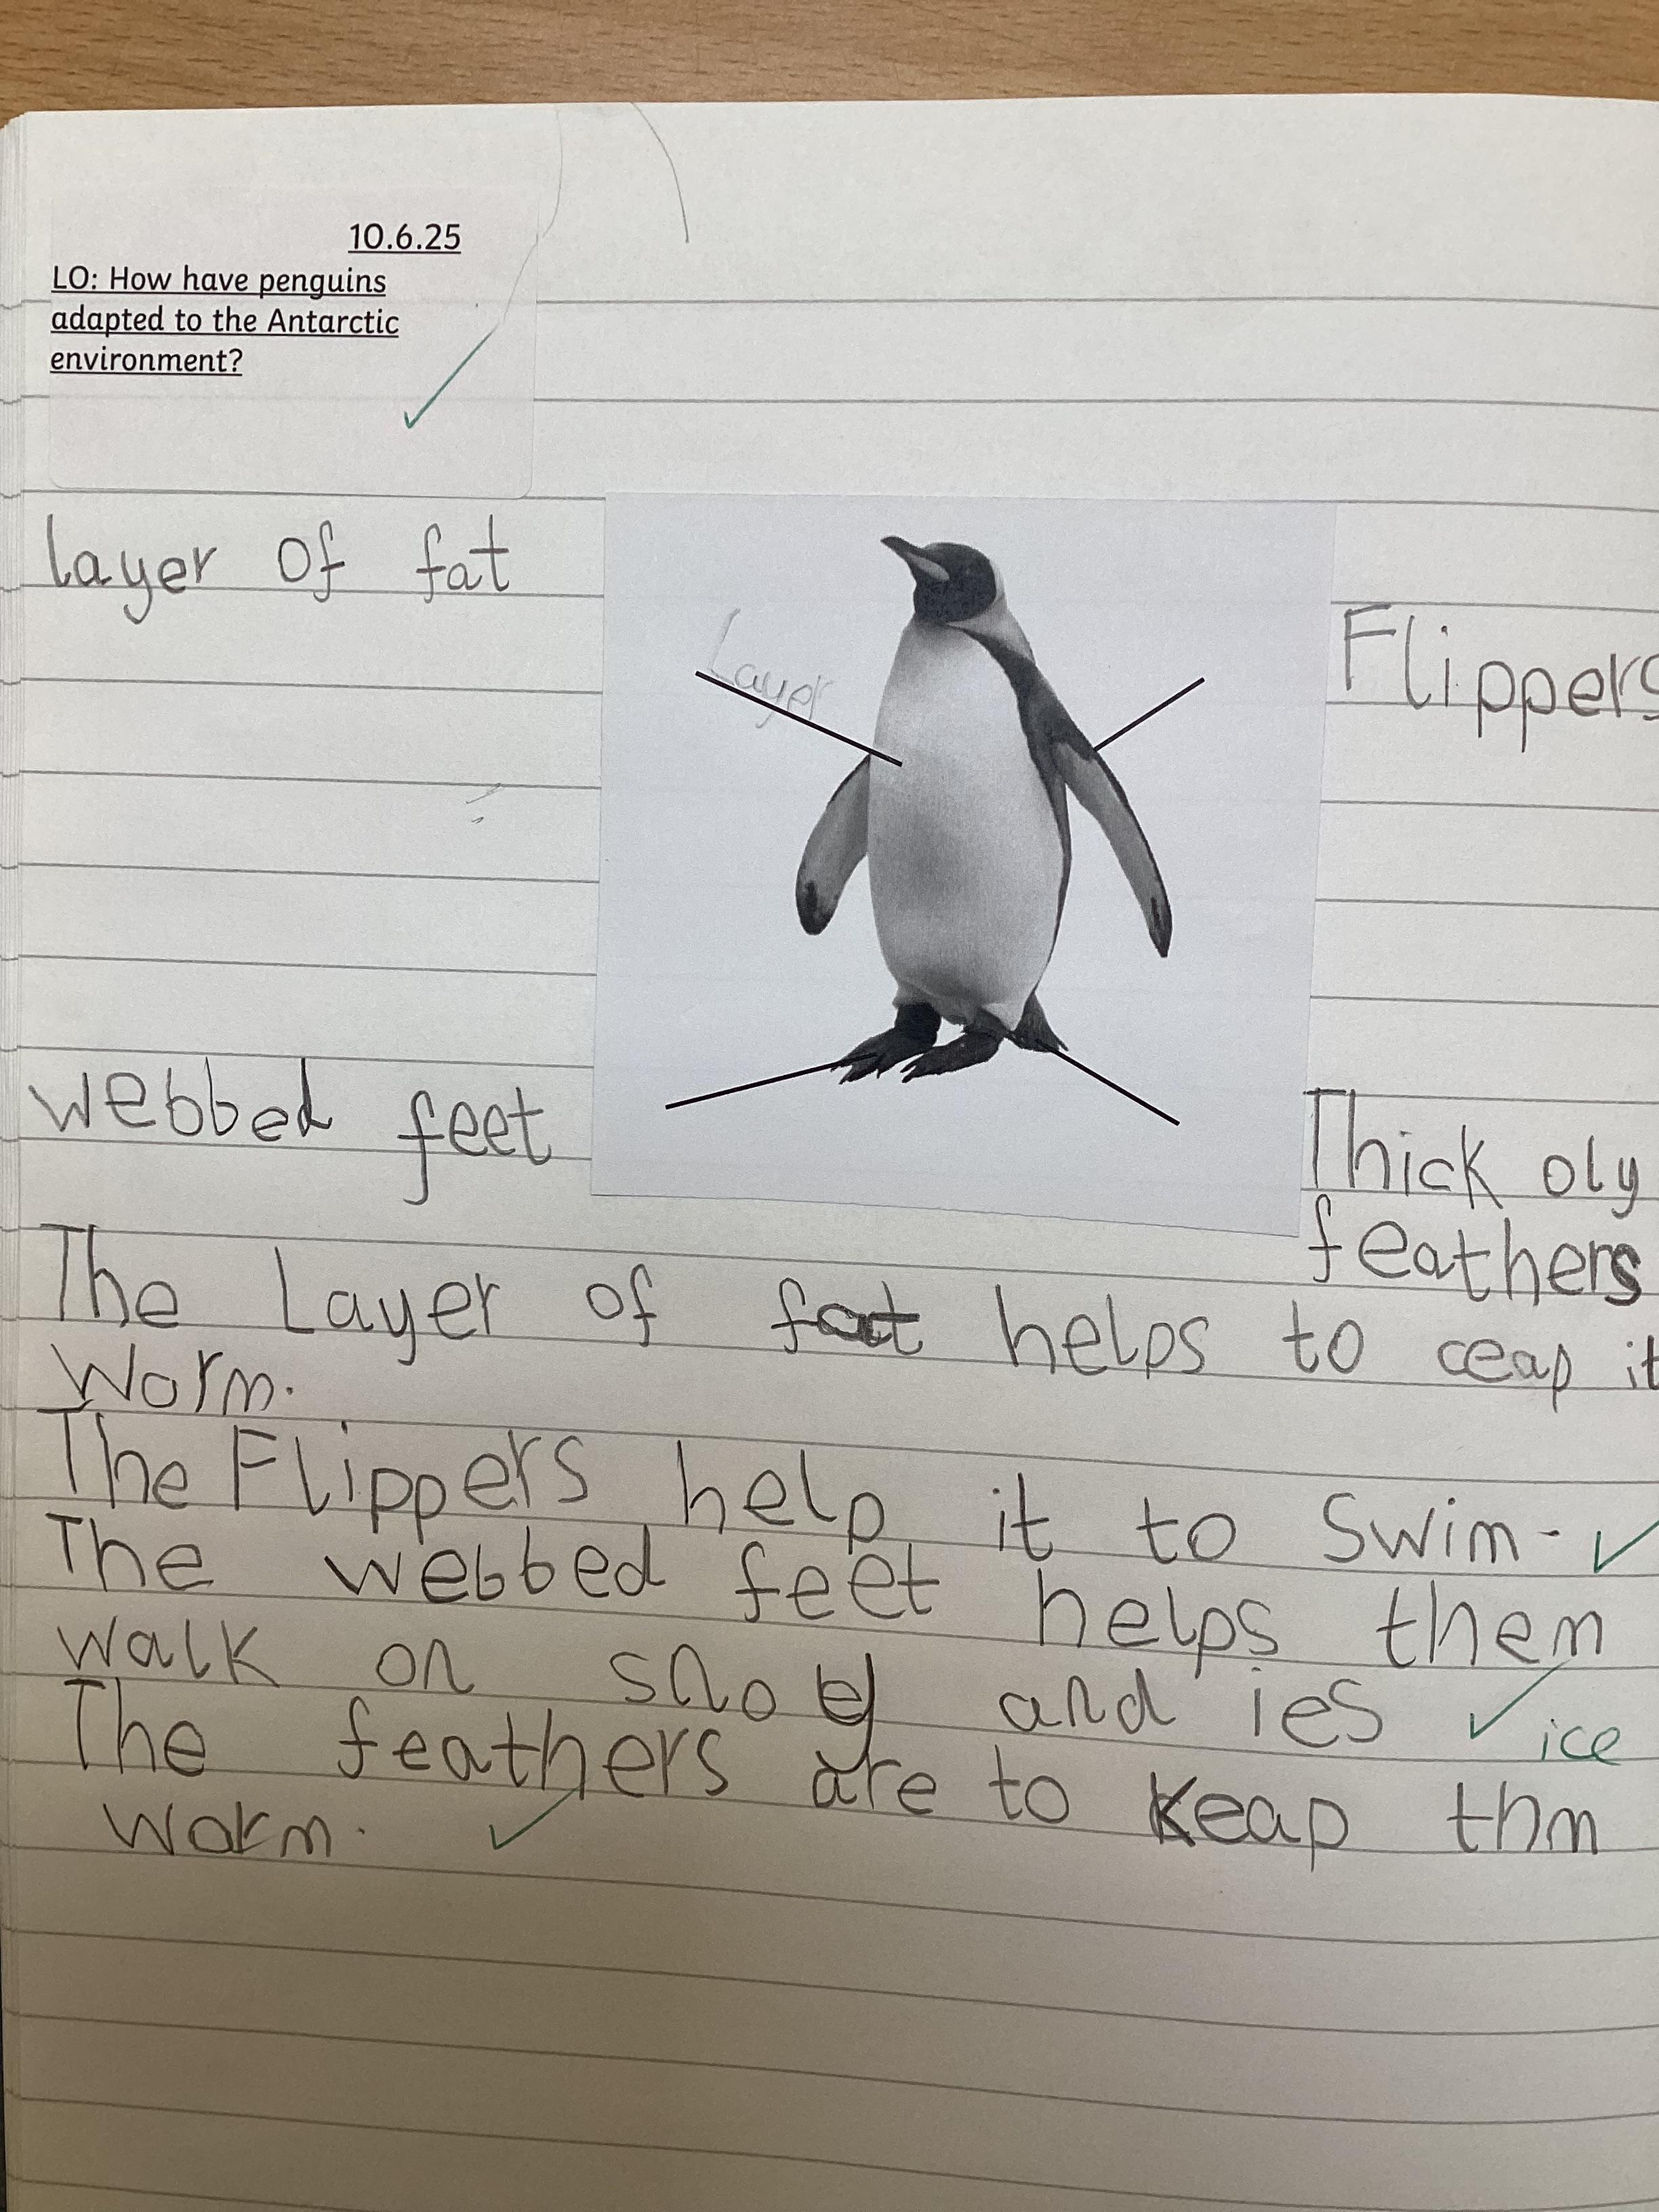 10.6.25
LO: How have penguins
adapted to the Antarctic
environment?
layer of fat
Layer
Flippers
webbed feet
Thick oly
feathers
The Layer of fat helps to ceap it
Worm.
The Flippers help it to Swim.
The webbed feet helps them
walk on sno and ies ice
The feathers are to keap thm
worm.